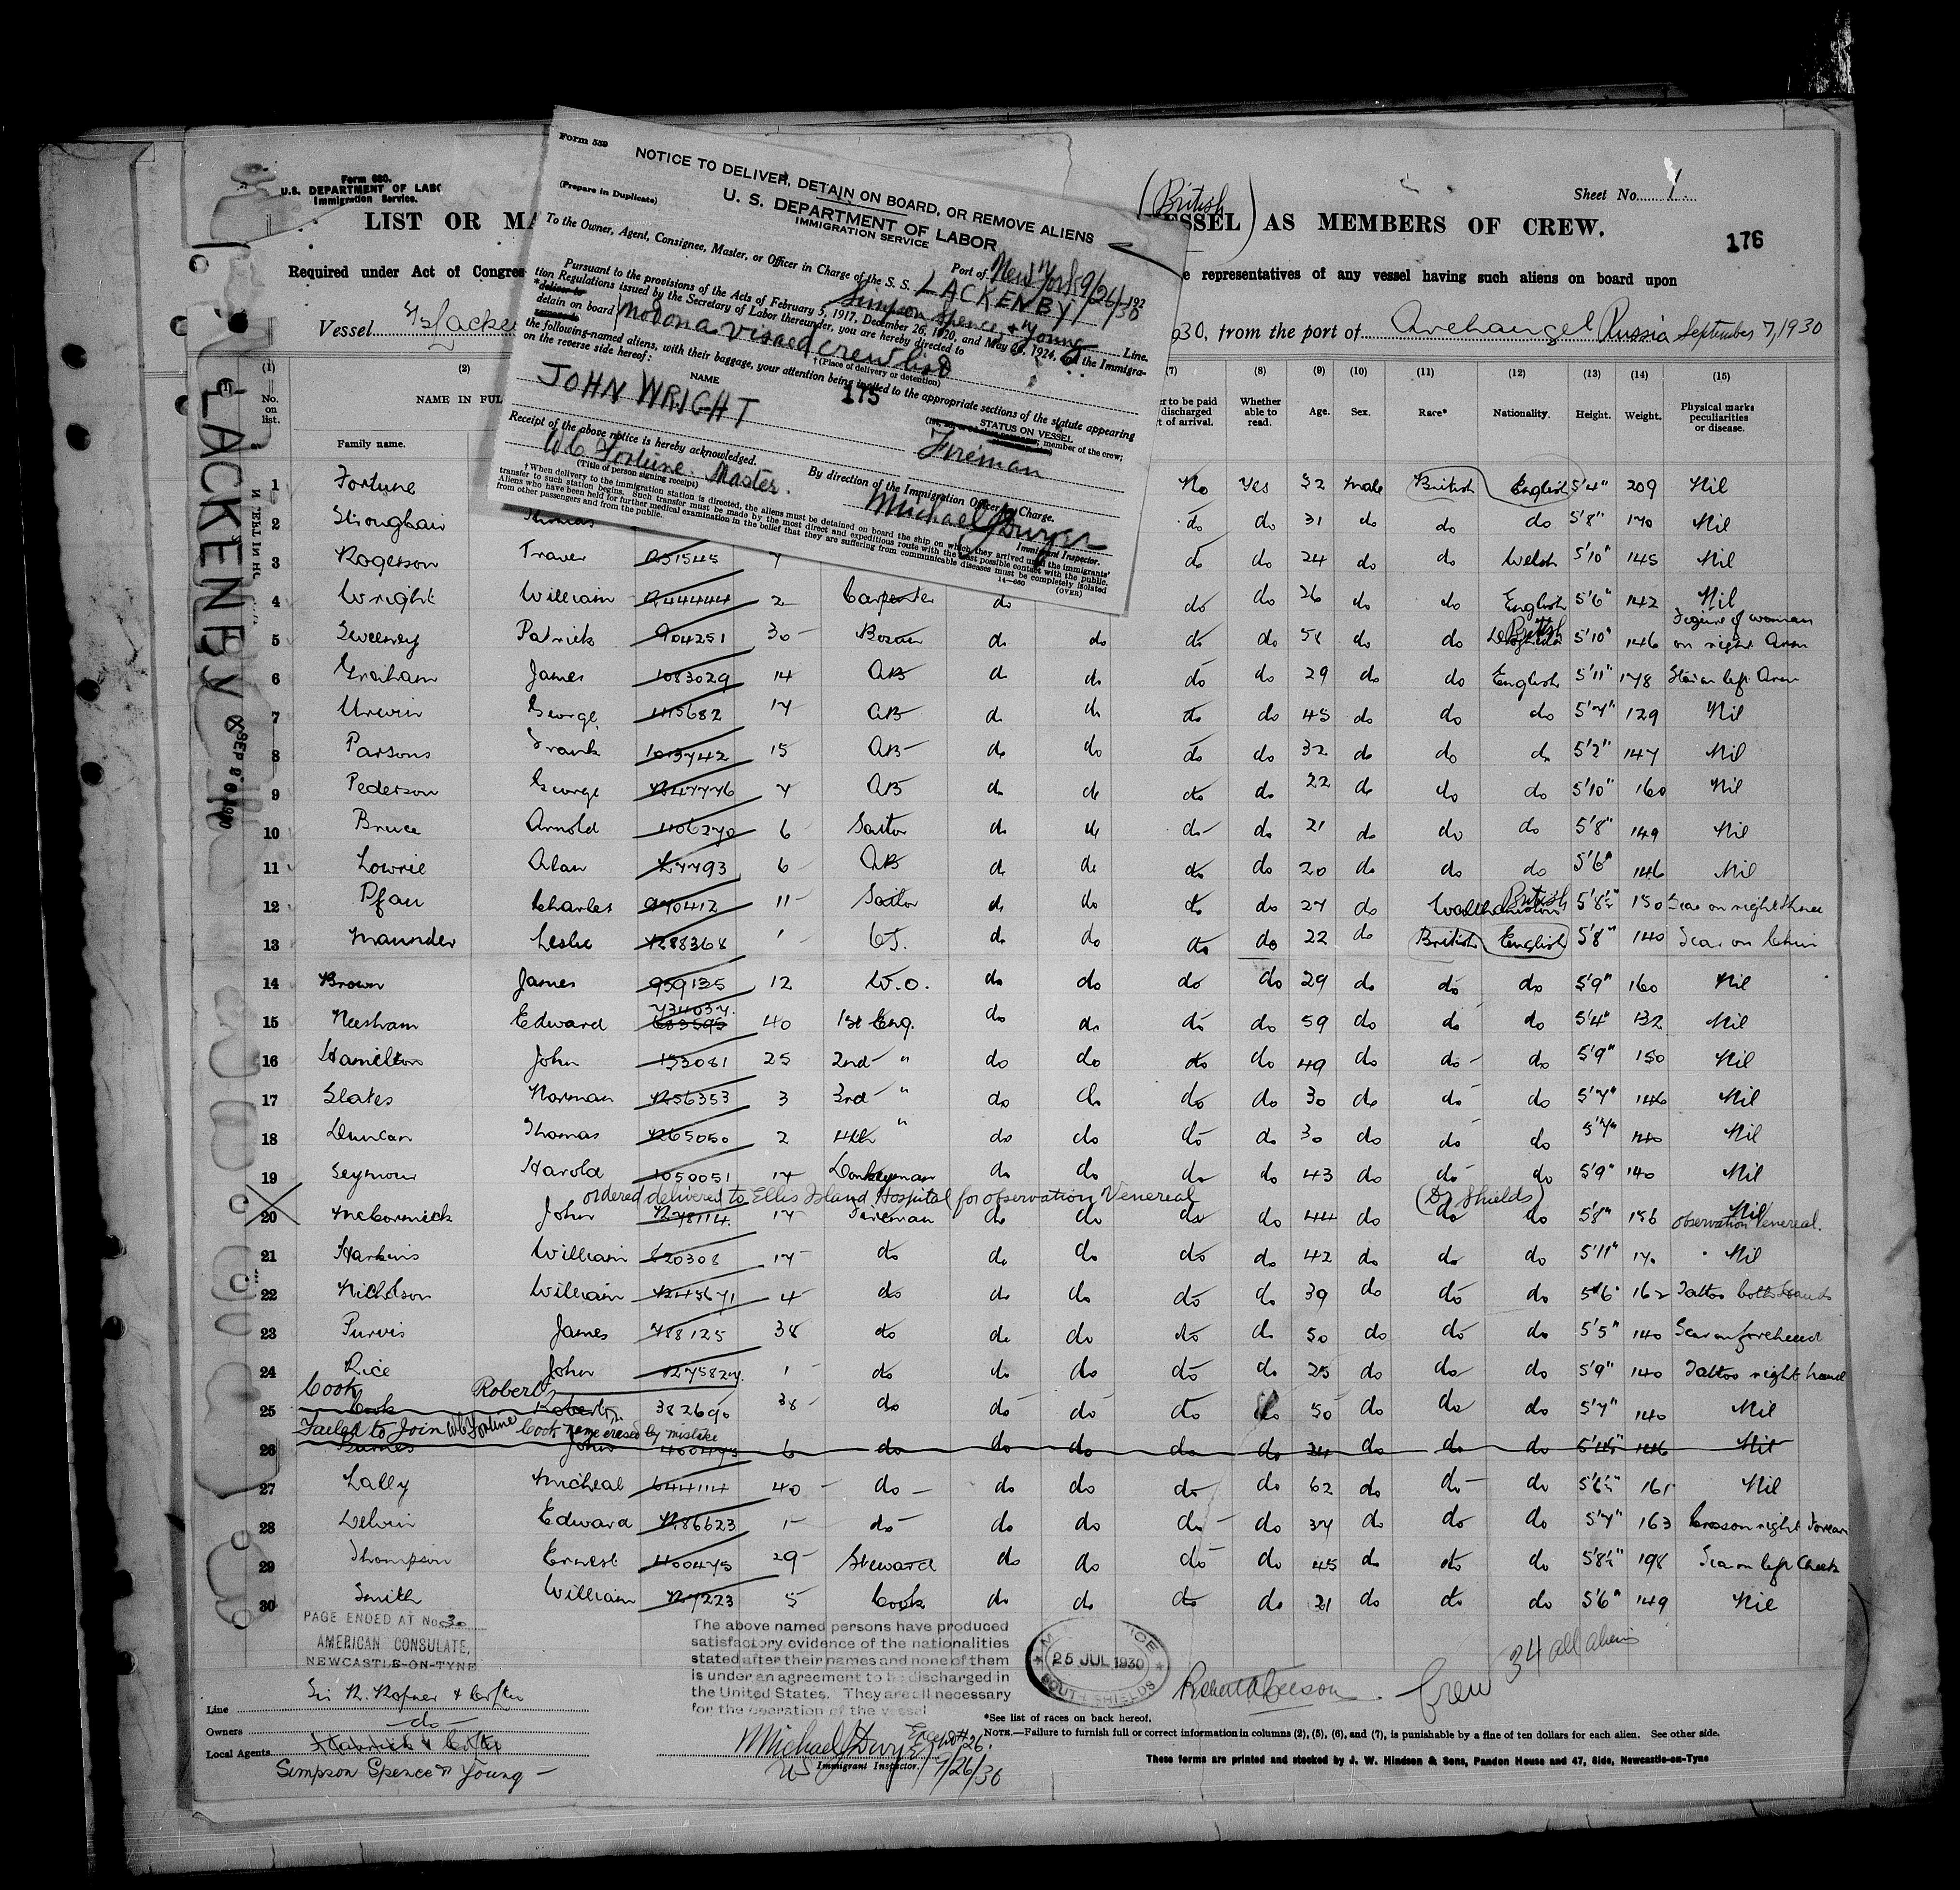 Form 559
NOTICE TO DELIVER, DETAIN ON BOARD, OR REMOVE ALIENS
(Prepare in Duplicate)
U. S. DEPARTMENT OF LABOR
IMMIGRATION SERVICE
Port of New York 9/26/1930
To the Owner, Agent, Consignee, Master, or Officer in Charge of the S. S. LACKENBY
Simpson Spence & Young Line.
Pursuant to the provisions of the Acts of February 5, 1917, December 26, 1920, and May 26, 1924, and the Immigra-
tion Regulations issued by the Secretary of Labor thereunder, you are hereby directed to
detain on board not on a visaed crew list
†(Place of delivery or detention)
the following-named aliens, with their baggage, your attention being invited to the appropriate sections of the statute appearing
on the reverse side hereof:
NAME
STATUS ON VESSEL
member of the crew;
175
JOHN WRIGHT Fireman
Receipt of the above notice is hereby acknowledged.
By direction of the Immigration Officer in Charge.
W C Fortune. Master.
(Title of person signing receipt)
Michael J Dwyer
Immigrant Inspector.
†When delivery to the immigration station is directed, the aliens must be detained on board the ship on which they arrived until the immigrants'
transfer to such station begins. Such transfer must be made by the most direct and expeditious route with the least possible contact with the public.
Aliens who have been held for further medical examination in the belief that they are suffering from communicable diseases must be completely isolated
from other passengers and from the public.
14—660
(OVER)
Form 680.
U. S. DEPARTMENT OF LABO
Immigration Service.
Sheet No. 1
LIST OR MA
(British
ESSEL) AS MEMBERS OF CREW.
176
Required under Act of Congres
e representatives of any vessel having such aliens on board upon
Vessel
930, from the port of Archangel Russia September 7, 1930
LACKENBY
(1) (2) (7) (8) (9) (10) (11) (12) (13) (14) (15)
No. on list. NAME IN FUL Family name. er to be paid discharged t of arrival. Whether able to read. Age. Sex. Race* Nationality. Height. Weight. Physical marks peculiarities or disease.
1 Fortune No Yes 52 male British English 5'4" 209 Nil
2 Thomas do do 31 do do do 5'8" 170 Nil
3 Rogerson 7 do do 24 do do Welsh 5'10" 145 Nil
4 Wright William 244444 2 Carpenter do do do 26 do do English 5'6" 142 Nil
5 Sweeney Patrick 904251 30 Bosun do do do do 51 do do British 5'10" 146 Figure of woman on right Arm
6 Graham James 1083029 14 AB do do do do 29 do do English 5'11" 178 left Arm
7 Urwin George 1115682 17 AB do do do do 45 do do do 5'7" 129 Nil
8 Parsons Frank 1013742 15 AB do do do do 32 do do do 5'2" 147 Nil
9 Pederson George 7 AB do do do do 22 do do do 5'10" 160 Nil
10 Bruce Arnold 1106270 6 Sailor do do do do 21 do do do 5'8" 149 Nil
11 Lowrie Alan 6 AB do do do do 20 do do do 5'6" 146 Nil
12 Pfau Charles 970412 11 Sailor do do do do 27 do British 5'8½" 150 Scar on right
13 Maunder Leslie 1 do do do do 22 do British English 5'8" 140 Scar on Chin
14 Brown James 959135 12 W.O. do do do do 29 do do do 5'9" 160 Nil
15 Neesham Edward 734037 40 1st Eng. do do do do 59 do do do 5'4" 132 Nil
16 Hamilton John 153081 25 2nd " do do do do 49 do do do 5'9" 150 Nil
17 Slates Norman 3 3rd " do do do do 30 do do do 5'7" 146 Nil
18 Duncan Thomas 2 4th " do do do do 30 do do do 5'7" 140 Nil
19 Seymour Harold 1050051 17 Donkeyman do do do do 43 do do do 5'9" 140 Nil
ordered delivered to Ellis Island Hospital for observation Venereal (Dr Shields)
20 McCormick John 17 Fireman do do do do 44 do do do 5'8" 156 Nil observation Venereal.
21 Harkins William 620308 17 do do do do do 42 do do do 5'11" Nil
22 Nicholson William 4 do do do do do 39 do do do 5'6" 162 Tattoo both hands
23 Purvis James 788125 38 do do do do do 50 do do do 5'5" 140 Scar on forehead
24 Rice John 1 do do do do do 25 do do do 5'9" 140 Tattoo right hand
Cook Robert
25 Cook Robert 382690 38 do do do do do 50 do do do 5'7" 140 Nil
Failed to Join WC Fortune Cook name erased by mistake
26 Burnes John 6 do do do do do 24 do do do 146 Nil
27 Lally Micheal 644114 40 do do do do do 62 do do do 5'6½" 161 Nil
28 Delvin Edward 1 do do do do do 37 do do do 5'7" 163 Cross on right Forearm
29 Thompson Ernest 400475 29 Steward do do do do 45 do do do 5'8½" 198 Scar on left Cheek
30 Smith William 5 Cook do do do do 21 do do do 5'6" 149 Nil
PAGE ENDED AT No 30
AMERICAN CONSULATE,
NEWCASTLE-ON-TYNE
The above named persons have produced
satisfactory evidence of the nationalities
stated after their names and none of them
is under an agreement to be discharged in
the United States. They are all necessary
for the operation of the vessel
25 JUL 1930
SOUTH SHIELDS
Crew 34 all aliens
Line Sir R. Ropner & Co Ltd
Owners do
Local Agents
Simpson Spence & Young
Michael J Dwyer
Immigrant Inspector.
9/26/30
*See list of races on back hereof.
NOTE.—Failure to furnish full or correct information in columns (2), (5), (6), and (7), is punishable by a fine of ten dollars for each alien. See other side.
These forms are printed and stocked by J. W. Hindson & Sons, Pandon House and 47, Side, Newcastle-on-Tyne